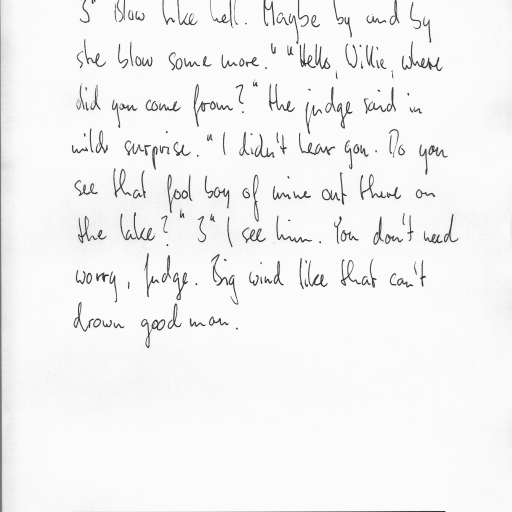 3" Blow like hell. Maybe by and by
she blow some more." "Hello, Willie, where
did you come from?" the judge said in
mild surprise. "I didn't hear you. Do you
see that fool boy of mine out there on
the lake?" 3" I see him. You don't need
worry, Judge. Big wind like that can't
drown good man.